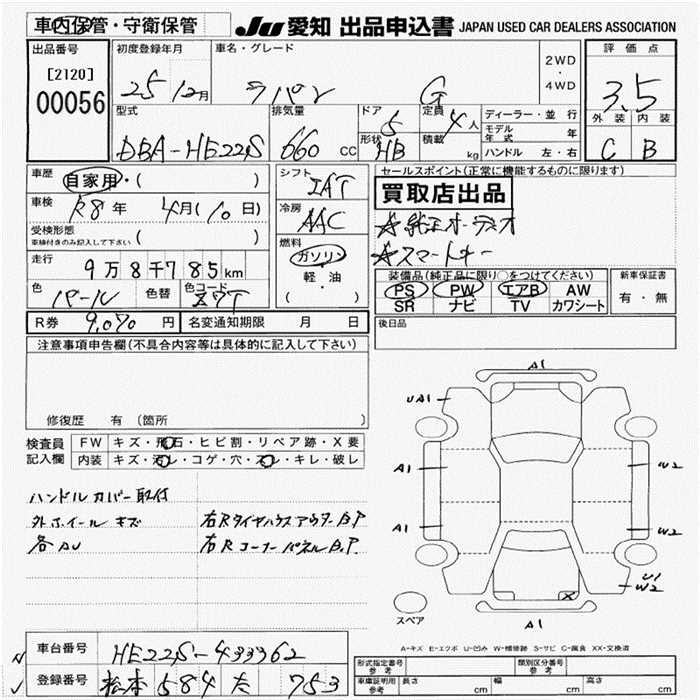 車内保管・守衛保管
JU 愛知 出品申込書 JAPAN USED CAR DEALERS ASSOCIATION
出品番号
[2120]
00056
初度登録年月
25年 12月
車名・グレード
ラパン G
2WD
・
4WD
評価点
3.5
外装 内装
C B
型式
DBA-HE22S
排気量
660 cc
ドア
5
形状
HB
定員
4人
積載 kg
ディーラー・並行
モデル年式 年
ハンドル 左・右
車歴
自家用・( )
車検
R8年 4月(10日)
受検形態
車検付きのみ記入して下さい ( )
走行
9万8千785km
色
パール
色替
色コード
ZVT
シフト
IAT
冷房
AAC
燃料
ガソリン
・
軽・油
( ・ )
セールスポイント(正常に機能するものに限ります)
買取店出品
☆純正オーディオ
☆スマートキー
装備品(純正品に限り○をつけてください)
PS PW エアB AW
SR ナビ TV カワシート
新車保証書
有・無
R券 9,070円
名変通知期限 月 日
後日品
注意事項申告欄(不具合内容等は具体的に記入して下さい)
修復歴 有 (箇所 )
検査員記入欄
FW キズ・飛石・ヒビ割・リペア跡・X要
内装 キズ・汚レ・コゲ・穴・スレ・キレ・破レ
ハンドルカバー取付
外ホイールキズ
各AU
右RタイヤハウスアウターB.P
右RコーナーパネルB.P.
A1
UA1
A1
W2
A1
W2
U1
W2
X
A1
スペア
A-キズ E-エクボ U-凹み W-補修跡 S-サビ C-腐食 XX-交換済
車台番号
HE22S-433362
登録番号
松本 584 た 753
型式指定番号
参考
類別区分番号
参考
車庫証明用
参考
長さ cm
幅 cm
高さ cm